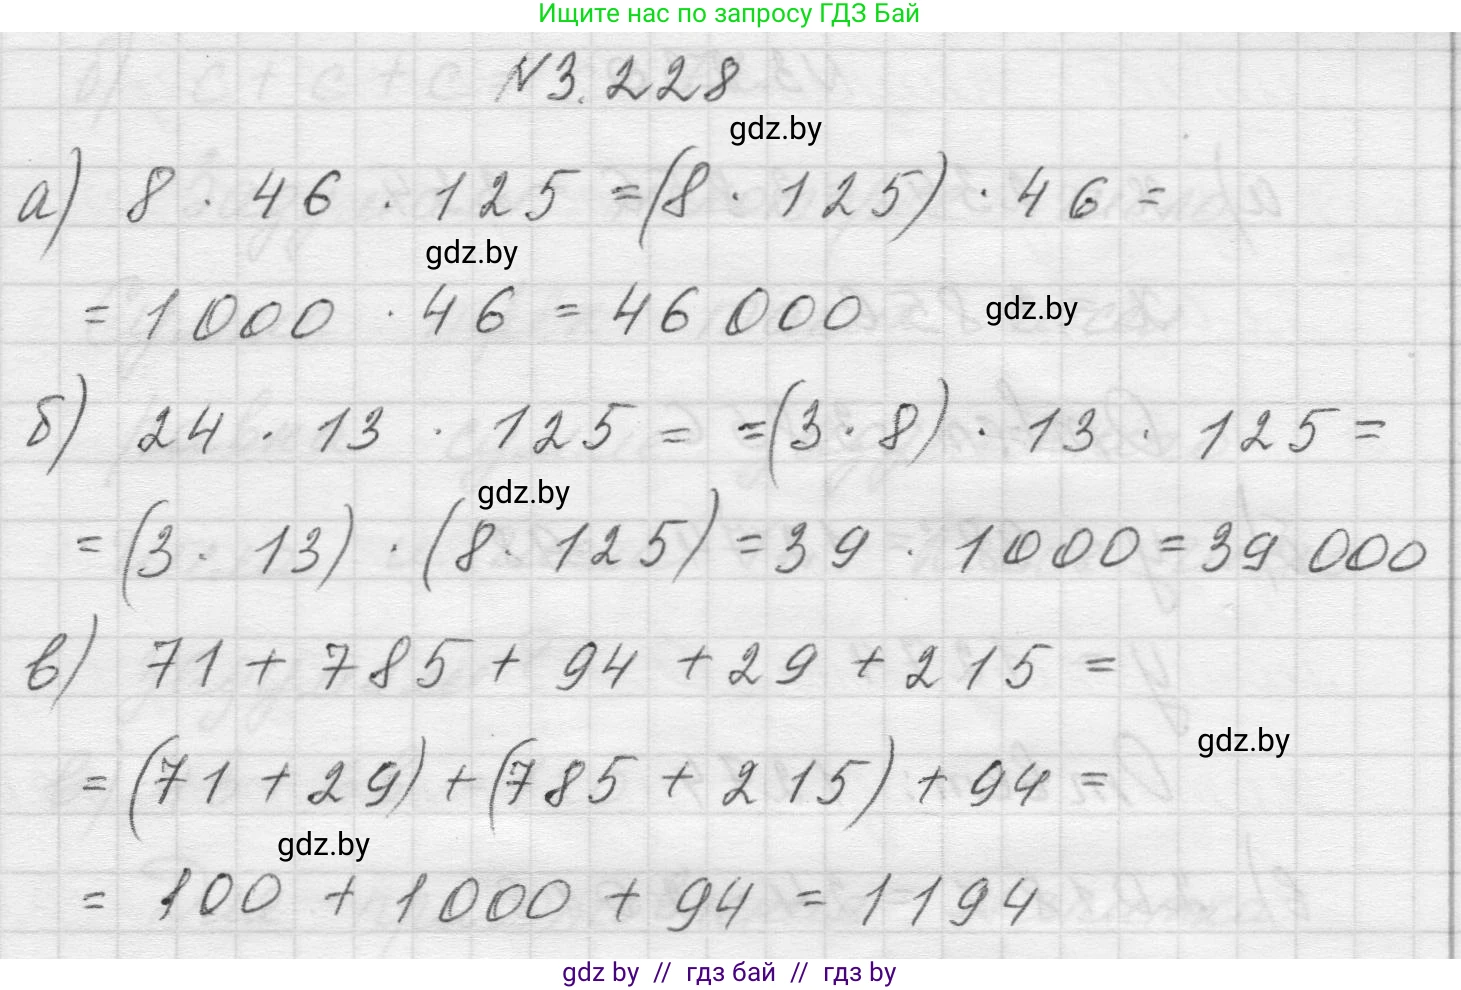 Ищите нас по запросу ГДЗ Бай
№3.228
gdz.by
а) 8 · 46 · 125 = (8 · 125) · 46 =
gdz.by
= 1000 · 46 = 46 000
gdz.by
б) 24 · 13 · 125 = =(3 · 8) · 13 · 125 =
gdz.by
= (3 · 13) · (8 · 125) = 39 · 1000 = 39 000
в) 71 + 785 + 94 + 29 + 215 =
gdz.by
= (71 + 29) + (785 + 215) + 94 =
gdz.by
= 100 + 1000 + 94 = 1194
gdz by // гдз бай // гдз by